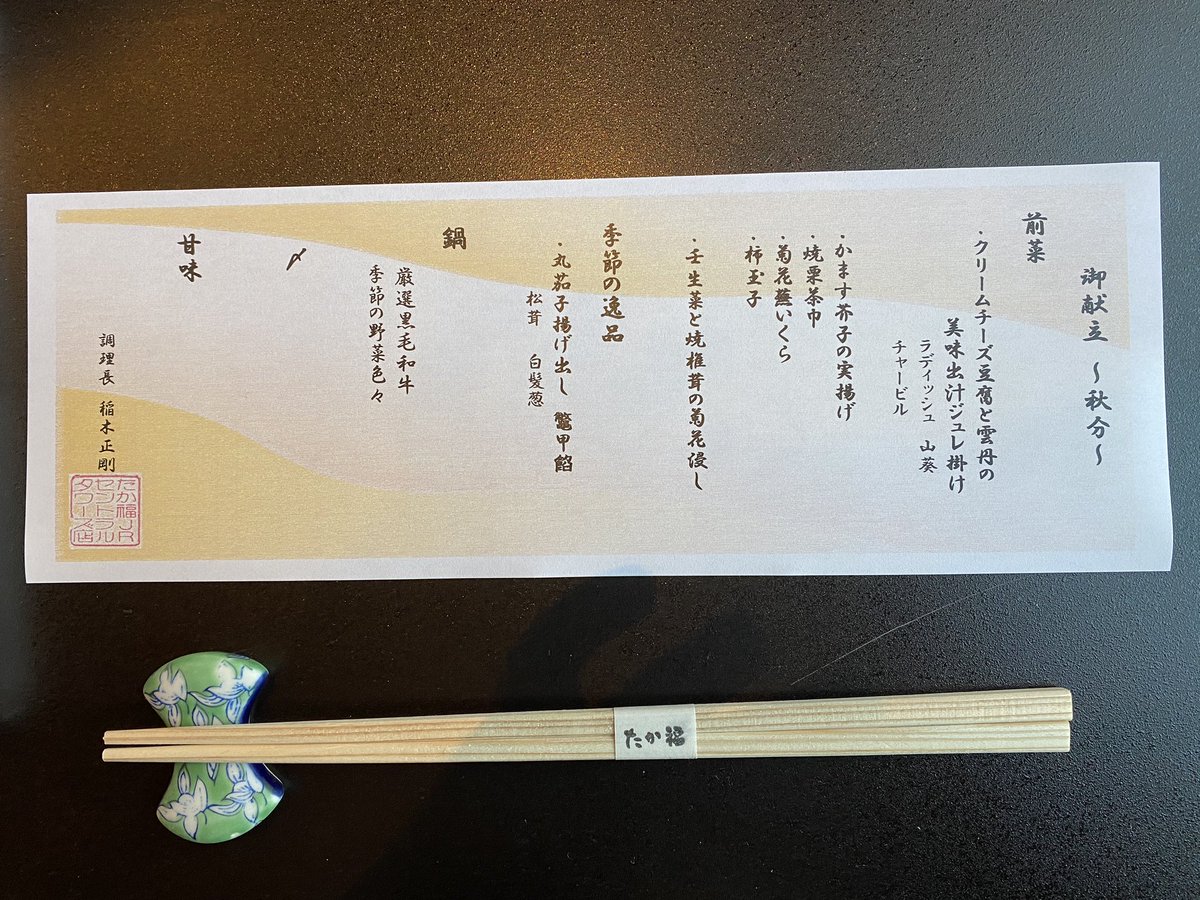 御献立 ～秋分～
前菜
・クリームチーズ豆腐と雲丹の
美味出汁ジュレ掛け
ラディッシュ 山葵
チャービル
・かます芥子の実揚げ
・焼栗茶巾
・菊花蕪いくら
・柿玉子
・壬生菜と焼椎茸の菊花浸し
季節の逸品
・丸茄子揚げ出し 鼈甲餡
松茸 白髪葱
鍋
厳選黒毛和牛
季節の野菜色々
〆
甘味
調理長 稲木正剛
たか福JR
セントラル
タワーズ店
たか福